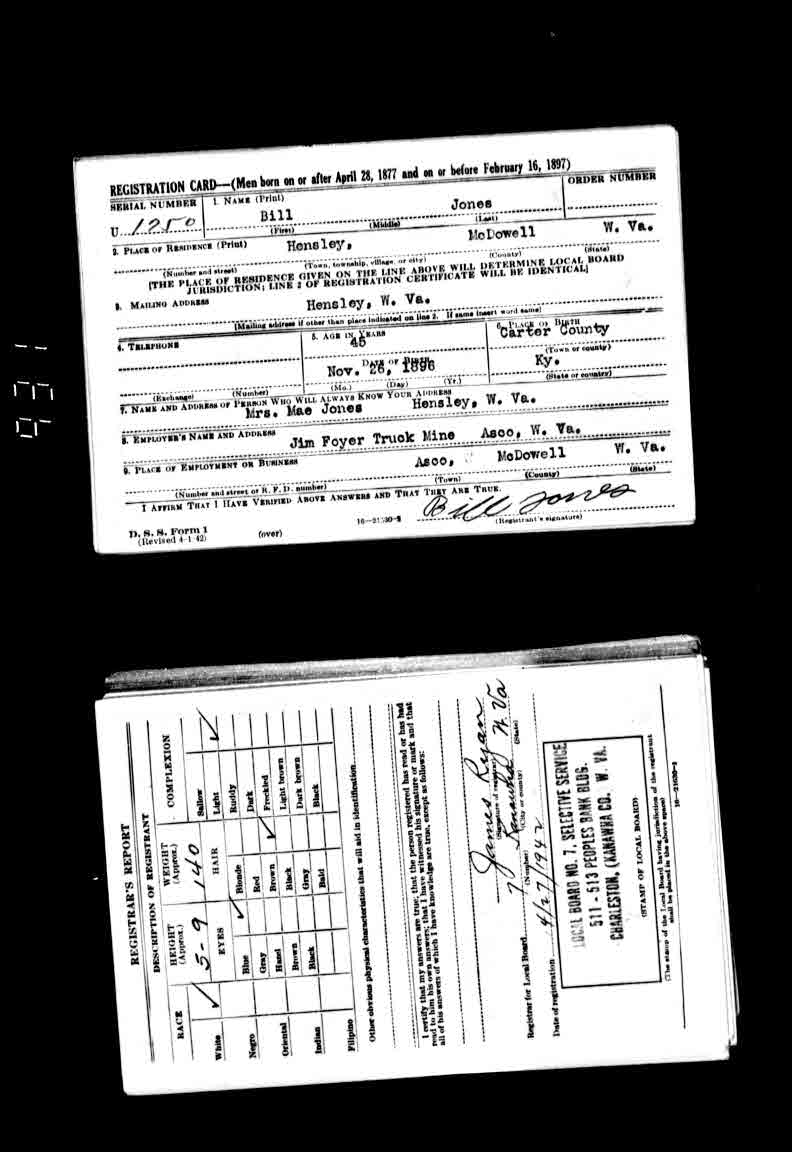 REGISTRATION CARD—(Men born on or after April 28, 1877 and on or before February 16, 1897)
SERIAL NUMBER 1. NAME (Print) ORDER NUMBER
U 1250 Bill Jones
(First) (Middle) (Last)
2. PLACE OF RESIDENCE (Print) Hensley, McDowell W. Va.
(Number and street) (Town, township, village, or city) (County) (State)
[THE PLACE OF RESIDENCE GIVEN ON THE LINE ABOVE WILL DETERMINE LOCAL BOARD
JURISDICTION; LINE 2 OF REGISTRATION CERTIFICATE WILL BE IDENTICAL]
3. MAILING ADDRESS Hensley, W. Va.
[Mailing address if other than place indicated on line 2. If same insert word same]
4. TELEPHONE 5. AGE IN YEARS 6. PLACE OF BIRTH
45 Carter County
DATE OF BIRTH (Town or county)
Nov. 26, 1896 Ky.
(Exchange) (Number) (Mo.) (Day) (Yr.) (State or country)
7. NAME AND ADDRESS OF PERSON WHO WILL ALWAYS KNOW YOUR ADDRESS
Mrs. Mae Jones Hensley, W. Va.
8. EMPLOYER'S NAME AND ADDRESS
Jim Foyer Truck Mine Asco, W. Va.
9. PLACE OF EMPLOYMENT OR BUSINESS
Asco, McDowell W. Va.
(Number and street or R. F. D. number) (Town) (County) (State)
I AFFIRM THAT I HAVE VERIFIED ABOVE ANSWERS AND THAT THEY ARE TRUE.
Bill Jones
D. S. S. Form 1 (Registrant's signature)
(Revised 4-1-42) (over) 16—21630-2
REGISTRAR'S REPORT
DESCRIPTION OF REGISTRANT
RACE HEIGHT (Approx.) WEIGHT (Approx.) COMPLEXION
5-9 140
White ✓ EYES HAIR Sallow
Light ✓
Negro Blue ✓ Blonde Ruddy
Gray Red Dark
Oriental Hazel Brown ✓ Freckled
Brown Black Light brown
Indian Black Gray Dark brown
Bald Black
Filipino
Other obvious physical characteristics that will aid in identification
I certify that my answers are true; that the person registered has read or has had
read to him his own answers; that I have witnessed his signature or mark and that
all of his answers of which I have knowledge are true, except as follows:
James Ryan
(Signature of registrar)
Registrar for Local Board 7 Kanawha W. Va
(Number) (City or county) (State)
Date of registration 4/27/1942
LOCAL BOARD NO. 7, SELECTIVE SERVICE
511 - 513 PEOPLES BANK BLDG.
CHARLESTON, (KANAWHA CO. W. VA.
(STAMP OF LOCAL BOARD)
(The stamp of the Local Board having jurisdiction of the registrant
shall be placed in the above space)
16—21630-2